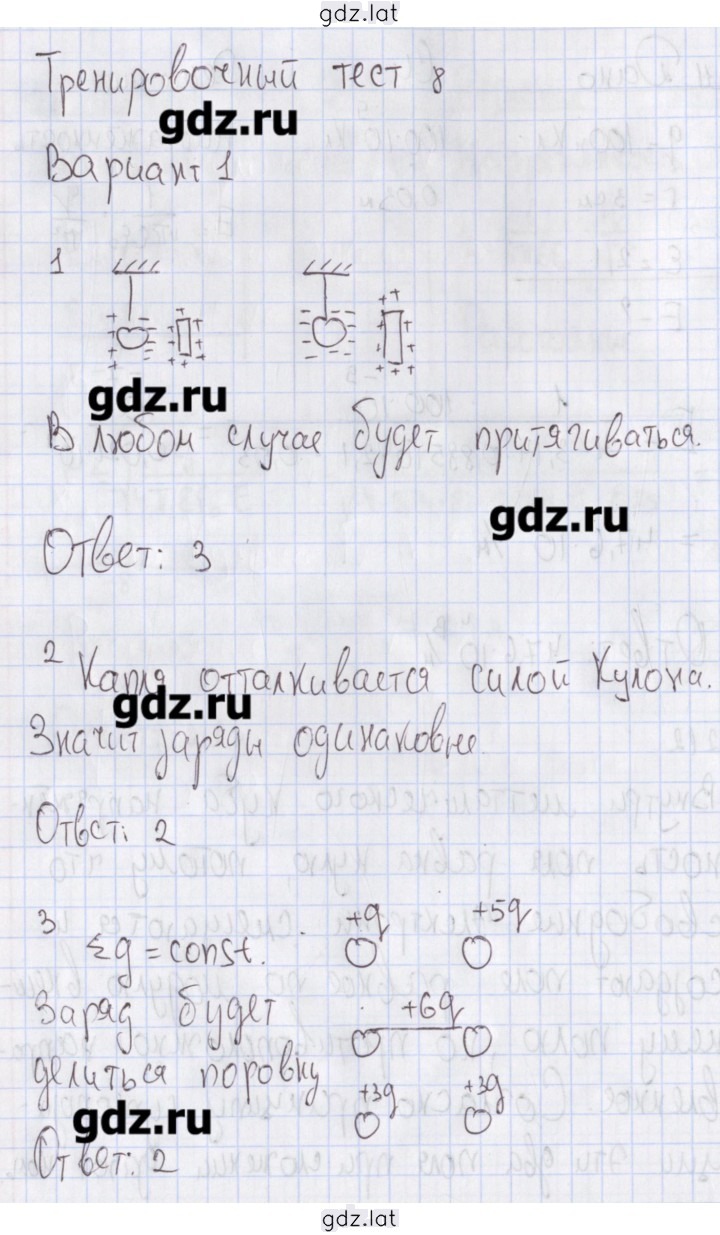 gdz.lat
Тренировочный тест 8
gdz.ru
Вариант 1
1
gdz.ru
В любом случае будет притягиваться.
gdz.ru
Ответ: 3
2 Капля отталкивается силой Кулона.
gdz.ru
Значит заряды одинаковые.
Ответ: 2
3 Σq = const. +q +5q
Заряд будет +6q
делиться поровну +3q +3q
gdz.ru
Ответ: 2
gdz.lat